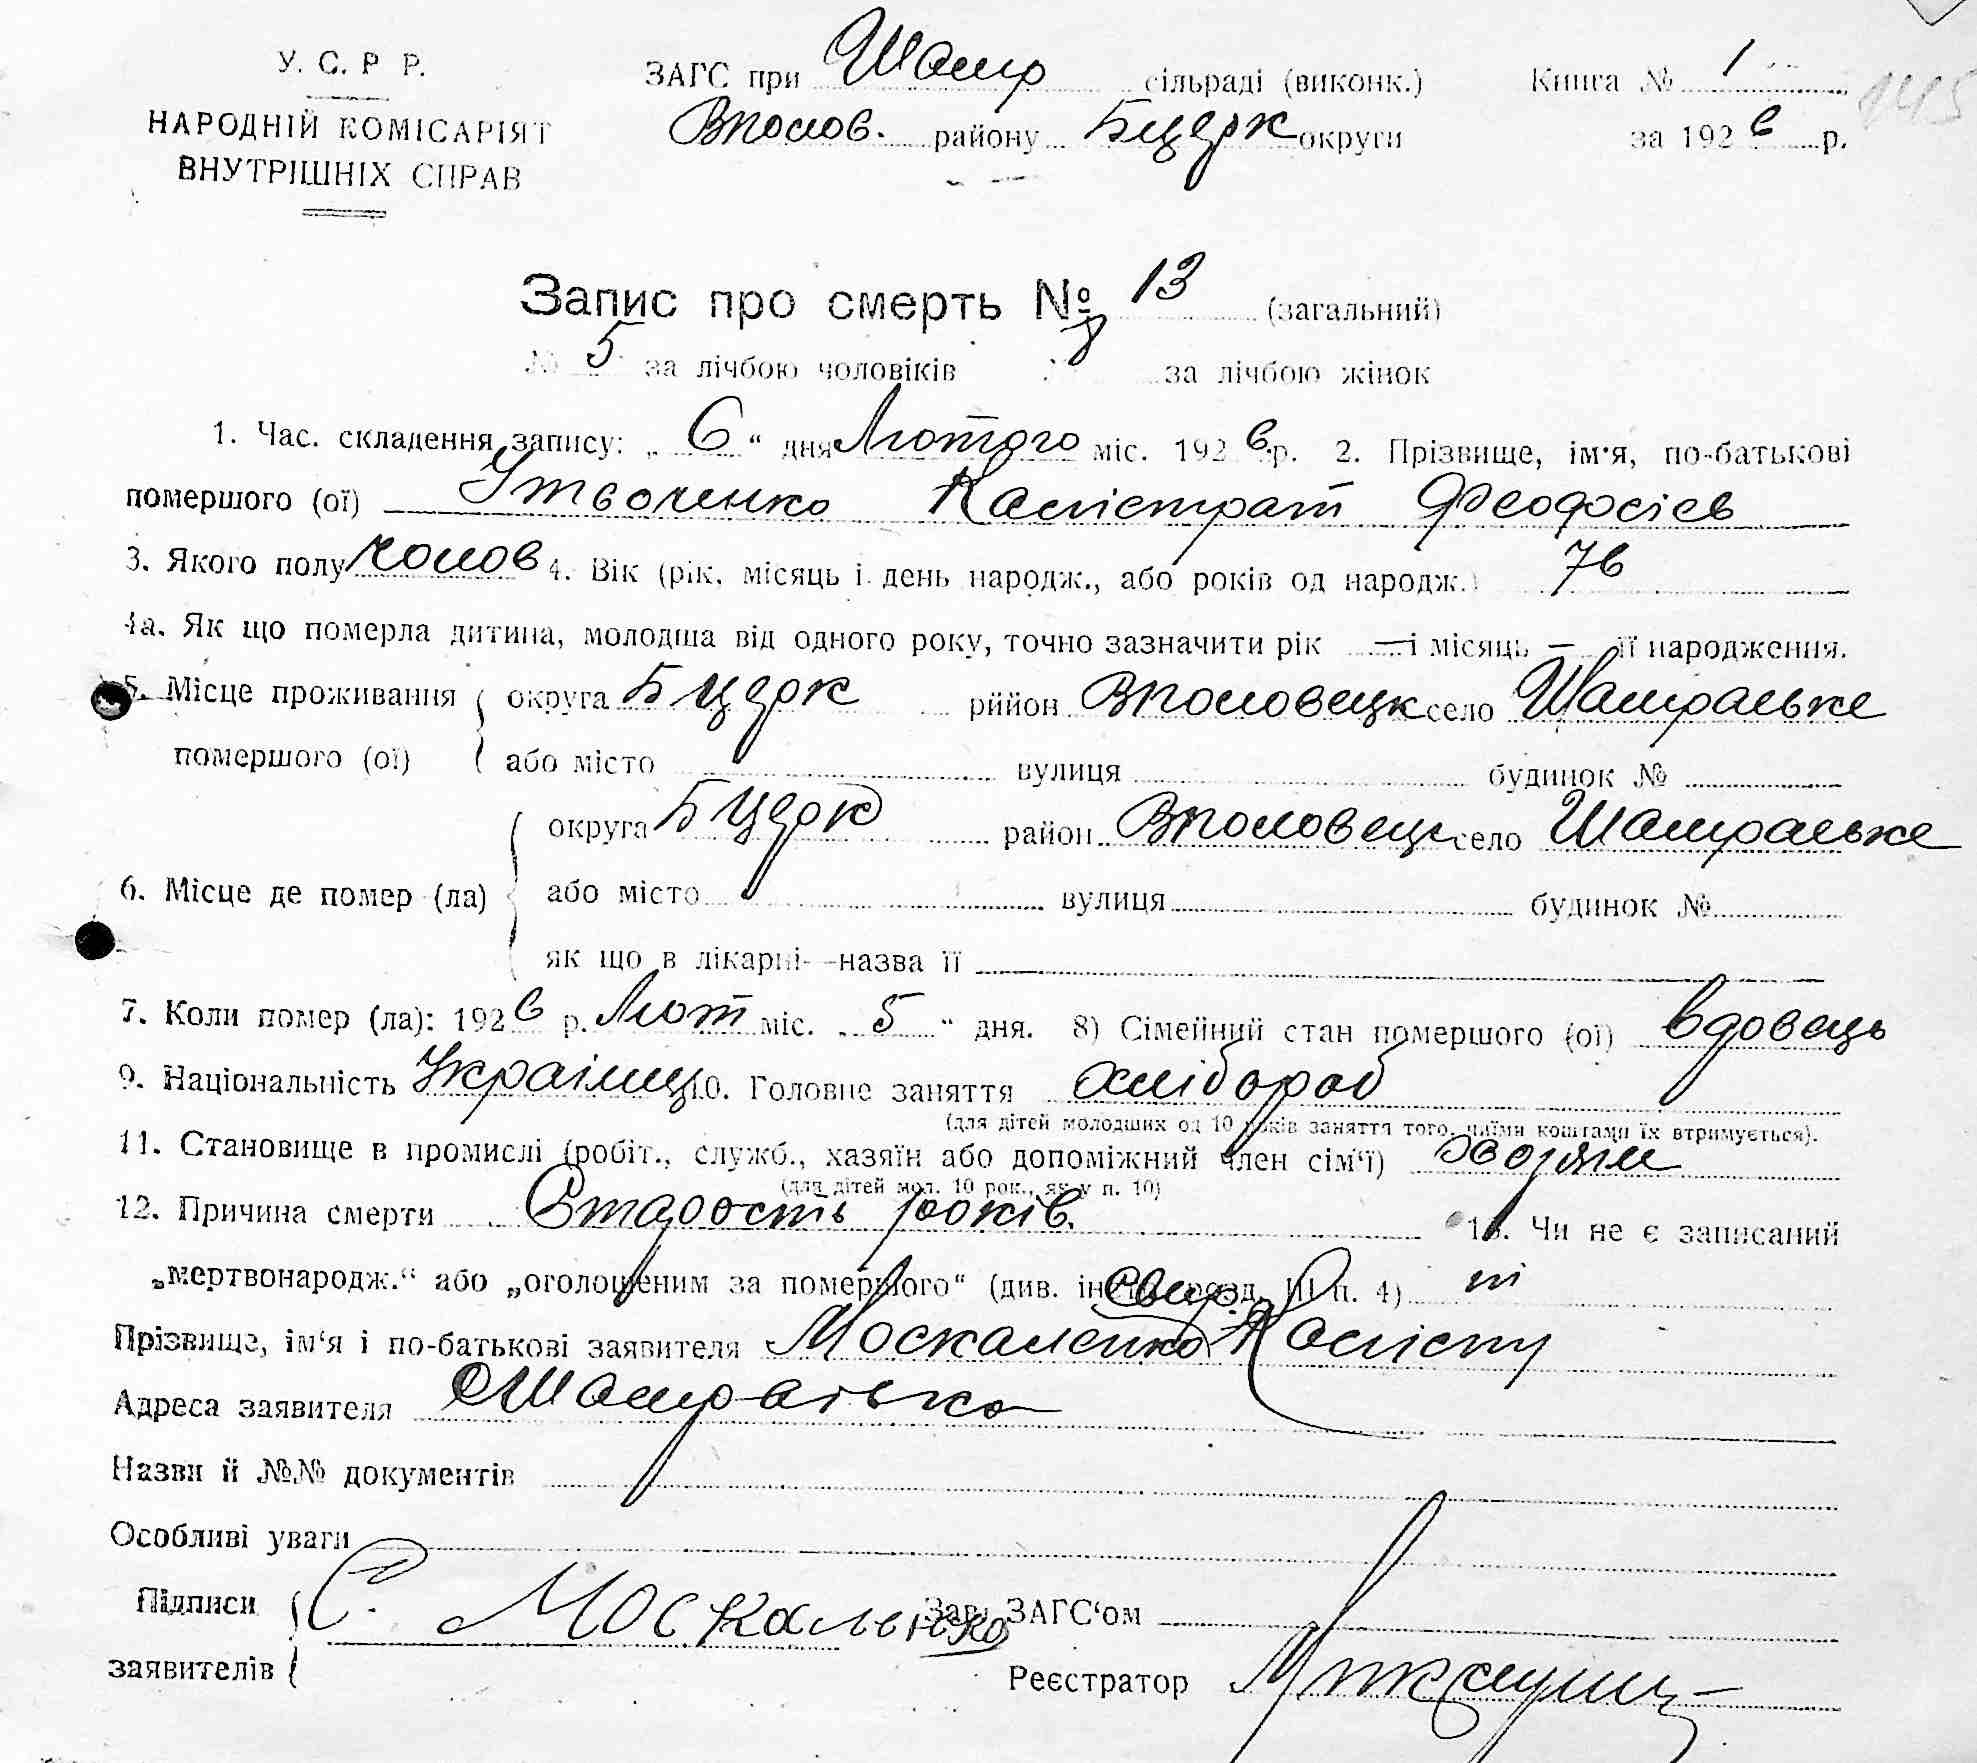 У. С. Р Р.
НАРОДНІЙ КОМІСАРІЯТ
ВНУТРІШНІХ СПРАВ
ЗАГС при Шамр сільраді (виконк.) Книга № 1
Вполов. району Бцерк округи за 1926 р.
145
Запис про смерть № 13 (загальний)
№ 5 за лічбою чоловіків 8 за лічбою жінок
1. Час. складення запису: „ 6 “ дня Лютого міс. 1926 р. 2. Прізвище, ім'я, по-батькові
помершого (ої) Калістрат Феодосієв
3. Якого полу чолов 4. Вік (рік, місяць і день народж., або років од народж.) 76
4а. Як що померла дитина, молодша від одного року, точно зазначити рік — і місяць — її народження.
5. Місце проживання округа Бцерк рйион Вполовецк село Шамраєвке
помершого (ої) або місто вулиця будинок №
округа Бцерк район Вполовецк село Шамраєвке
6. Місце де помер (ла) або місто вулиця будинок №
як що в лікарні- -назва її
7. Коли помер (ла): 1926 р. Лют міс. „ 5 “ дня. 8) Сімейний стан помершого (ої) вдовець
9. Національність Україниц 10. Головне заняття хлібороб
(для дітей молодших од 10 років заняття того, чиїми коштами їх втримується).
11. Становище в промислі (робіт., служб., хазяїн або допоміжний член сім'ї)
(для дітей мол. 10 рок., як у п. 10)
12. Причина смерти Старость років. 13. Чи не є записаний
„мертвонародж.“ або „оголошеним за помершого“ (див. інстр. розд. III п. 4) ні
Прізвище, ім'я і по-батькові заявителя Москаленко Свир. Каліст
Адреса заявителя Шамраївка
Назви й №№ документів
Особливі уваги
Підписи С. Москаленко Зав. ЗАГС'ом
заявителів Реєстратор